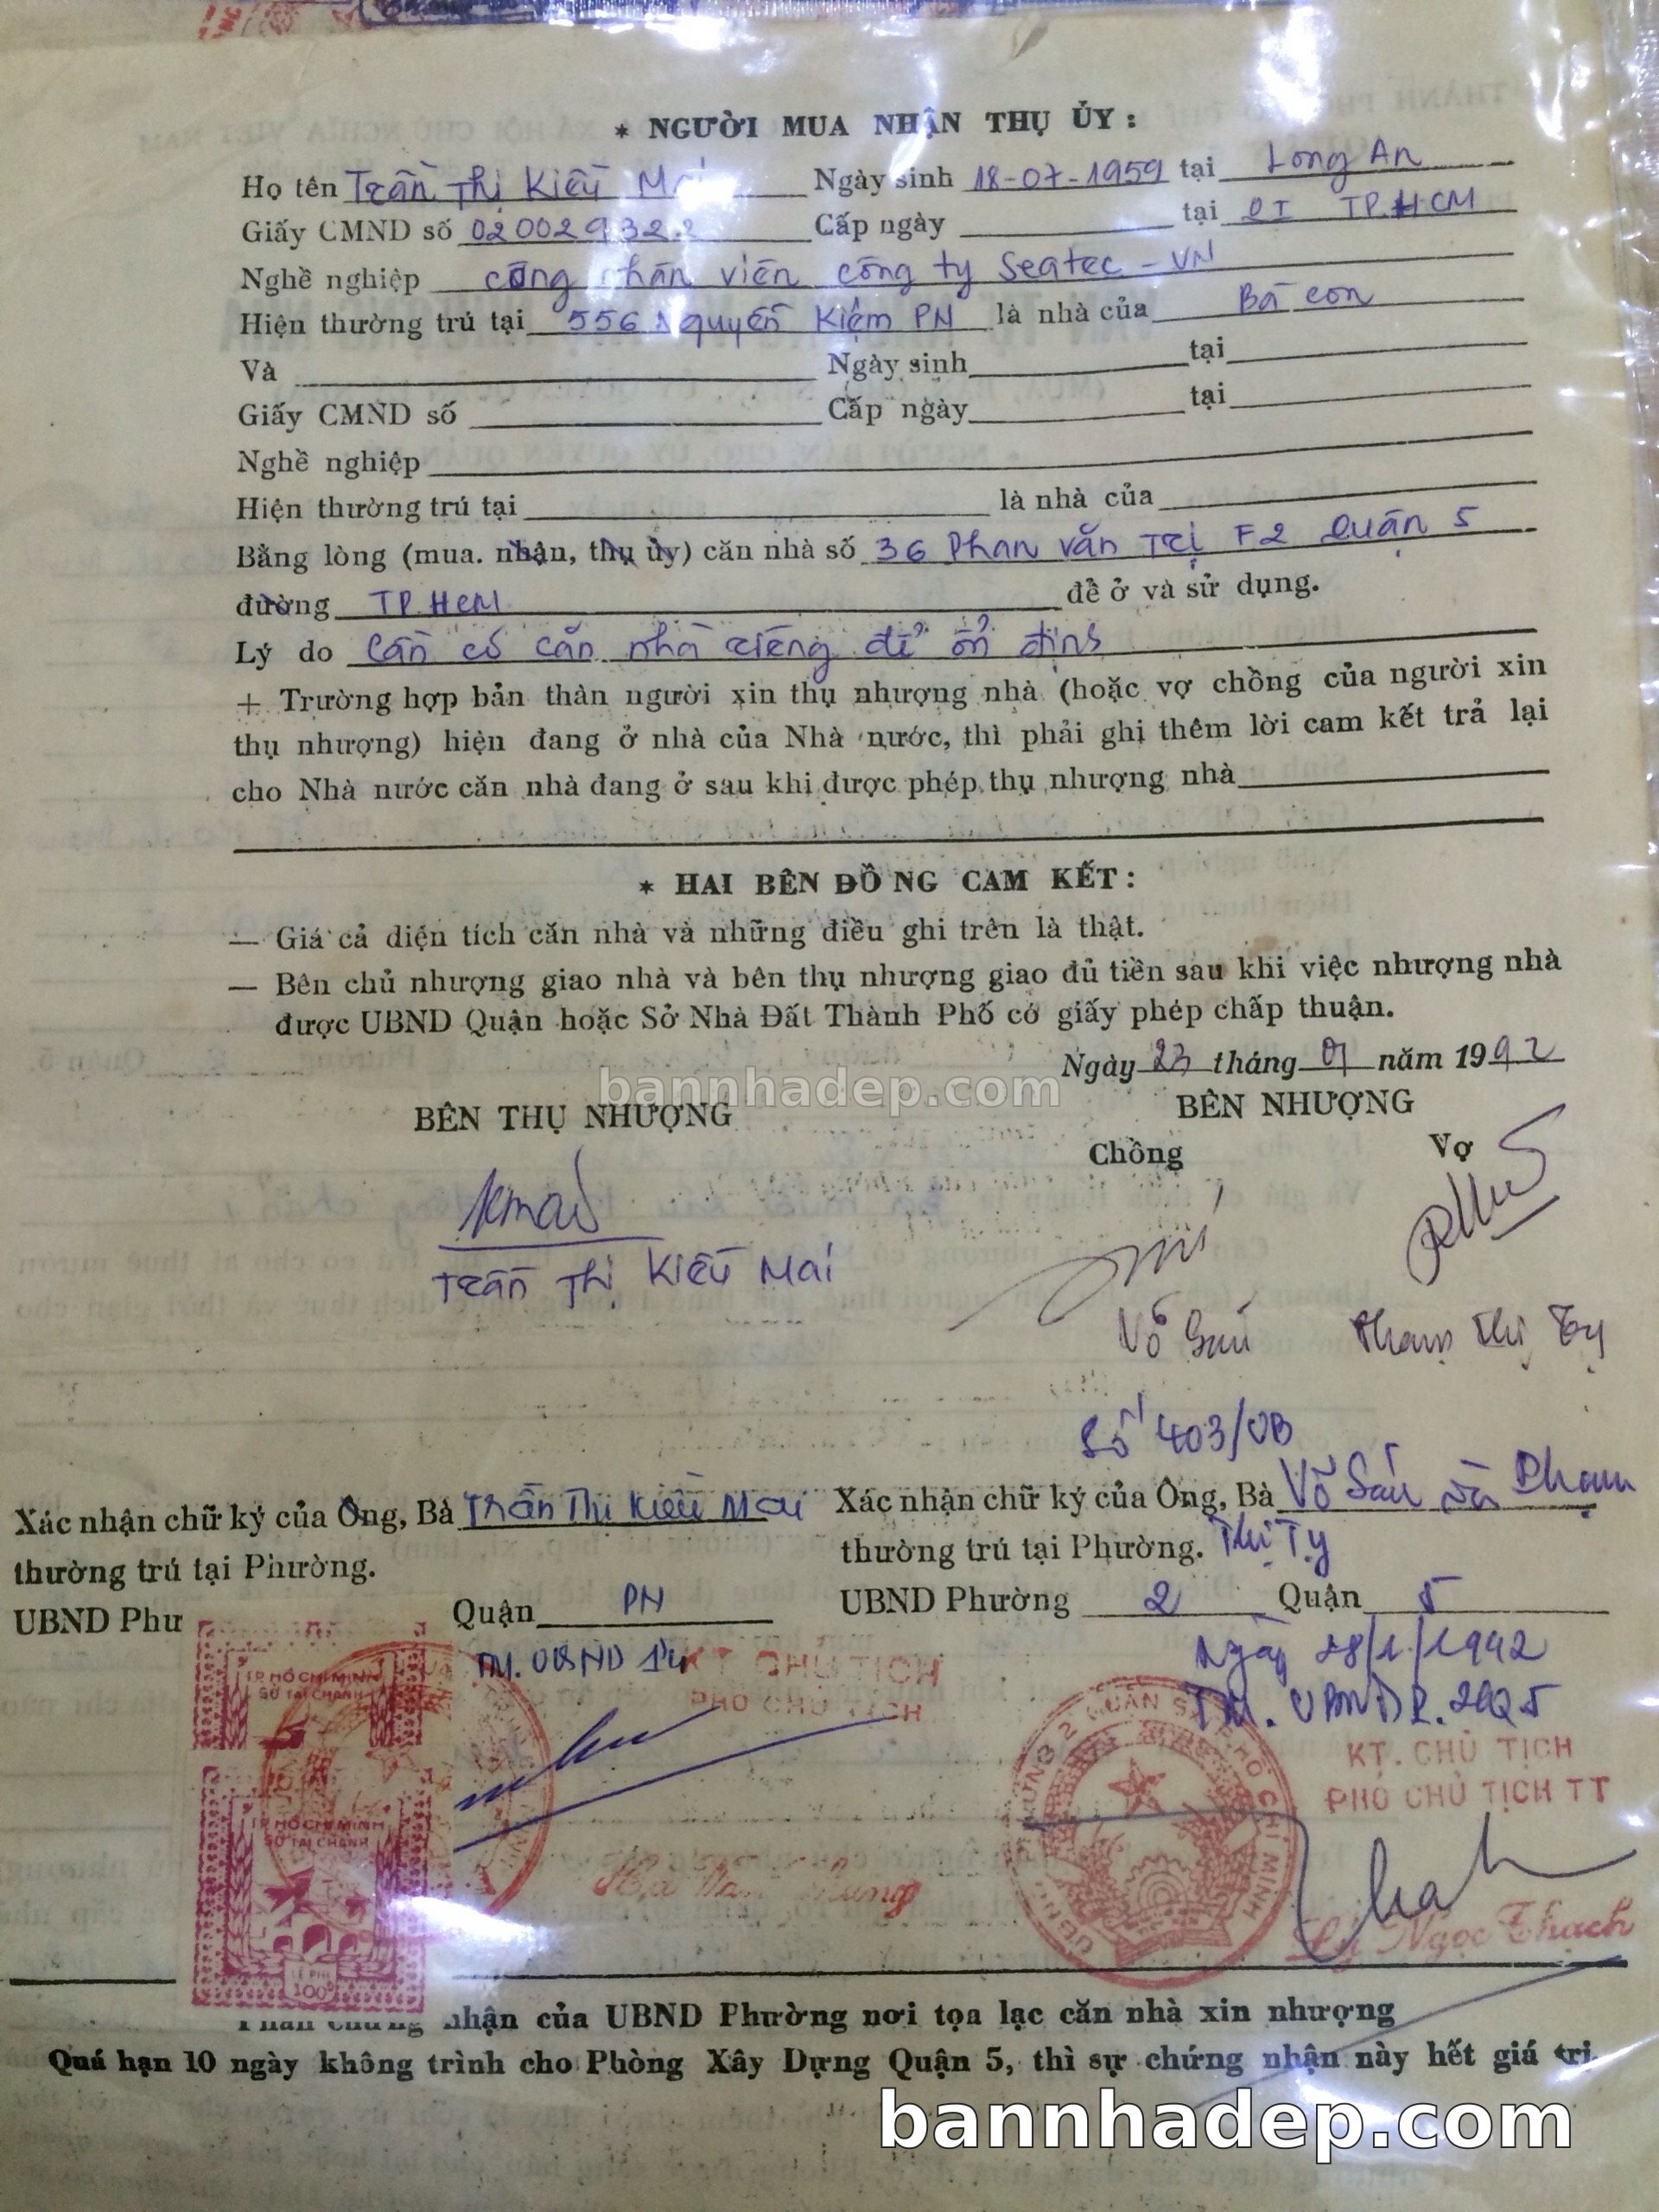 * NGƯỜI MUA NHẬN THỤ ỦY :
Họ tên Trần Thị Kiều Mai Ngày sinh 18-07-1959 tại Long An
Giấy CMND số 020029322 Cấp ngày tại TP.HCM
Nghề nghiệp công nhân viên công ty Seatec - VN
Hiện thường trú tại 556 Nguyễn Kiệm PN là nhà của Bà con
Và Ngày sinh tại
Giấy CMND số Cấp ngày tại
Nghề nghiệp
Hiện thường trú tại là nhà của
Bằng lòng (mua. nhận, thụ ủy) căn nhà số 36 Phan Văn Trị F2 Quận 5
đường TP.HCM để ở và sử dụng.
Lý do Cần có căn nhà riêng để ổn định
+ Trường hợp bản thân người xin thụ nhượng nhà (hoặc vợ chồng của người xin
thụ nhượng) hiện đang ở nhà của Nhà nước, thì phải ghi thêm lời cam kết trả lại
cho Nhà nước căn nhà đang ở sau khi được phép thụ nhượng nhà
* HAI BÊN ĐỒNG CAM KẾT :
— Giá cả diện tích căn nhà và những điều ghi trên là thật.
— Bên chủ nhượng giao nhà và bên thụ nhượng giao đủ tiền sau khi việc nhượng nhà
được UBND Quận hoặc Sở Nhà Đất Thành Phố có giấy phép chấp thuận.
Ngày 23 tháng 01 năm 1992
bannhadep.com
BÊN THỤ NHƯỢNG BÊN NHƯỢNG
Chồng Vợ
Kmai
Trần Thị Kiều Mai
Võ Sáu Phạm Thị Tỵ
Số 403/UB
Xác nhận chữ ký của Ông, Bà Trần Thị Kiều Mai Xác nhận chữ ký của Ông, Bà Võ Sáu và Phạm
thường trú tại Phường. thường trú tại Phường. Thị Tỵ
UBND Phư Quận PN UBND Phường 2 Quận 5
TM. UBND Ngày 28/1/1992
KT. CHỦ TỊCH TM. UBND P. 2 Q 5
PHÓ CHỦ TỊCH KT. CHỦ TỊCH
PHÓ CHỦ TỊCH TT
TP HỒ CHÍ MINH
SỞ TÀI CHÁNH
TP HỒ CHÍ MINH
SỞ TÀI CHÁNH
LỆ PHÍ
100đ
UBND PHƯỜNG 2 QUẬN 5 TP HỒ CHÍ MINH
Lý Ngọc Thạch
Phần chứng nhận của UBND Phường nơi tọa lạc căn nhà xin nhượng
Quá hạn 10 ngày không trình cho Phòng Xây Dựng Quận 5, thì sự chứng nhận này hết giá trị
bannhadep.com